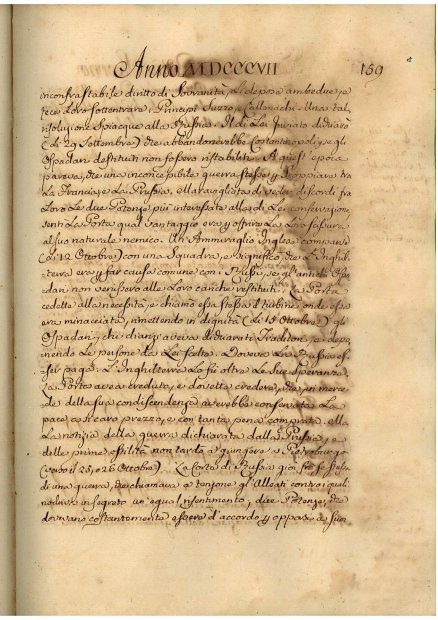 Anno MDCCCVII 159
incontrastabile diritto di Sovranità, li depose ambedue, e
fece loro sottentrare i Principi Suzzo, e Callimachi. Una tal
risoluzione spiacque alla Russia. Il di Lei Inviato dichiarò
(li 29 Settembre) che abbandonerebbe Costantinopoli, se gli
Ospodari destituti non fossero ristabiliti. A quest'epoca
pareva, che una inconcepibile guerra stesse per iscoppiare tra
La Francia, e La Russia, e maravigliata di veder discordi fra
Loro Le due Potenze più interessate alla di Lei conservazione
sentì La Porta qual vantaggio era per offrire La Loro
al suo naturale nemico. Un Ammiraglio Inglese comparve
(li 12 Ottobre) con una Squadra, e significò, che L'Inghil-
terra era per far causa comune con i Russi, se gl'antichi Ospo-
dari non venissero alle Loro cariche restituiti. La Porta
cedette alla necessità, e chiamò essa stessa il turbine, onde essa
era minacciata, rimettendo in dignità (li 15 Ottobre) gli
Ospodari, che dianzi aveva dichiarati Traditori, e depo-
nendo Le persone da Lei scelte. Doveva La Russia es-
ser paga. L'Inghilterra Lo fù oltre Le Sue Speranze.
La Porta aveva creduto, e dovette credere, che in merce-
de della sua condiscendenza avrebbe conservata La
pace a sì caro prezzo, e con tanta pena comprata. Ma
La notizia della guerra dichiarata dalla Russia, e
delle prime ostilità non tardò a giungere a Pietroburgo
(verso il 25, e 26 Ottobre). La Corte di Russia gioì fra se stessa
di una guerra, che chiamava a tenzone gl'Alleati contro i quali
nodriva in segreto un'egual risentimento; due Potenze, che
dovevano costantemente essere d'accordo per opporsi a' suoi